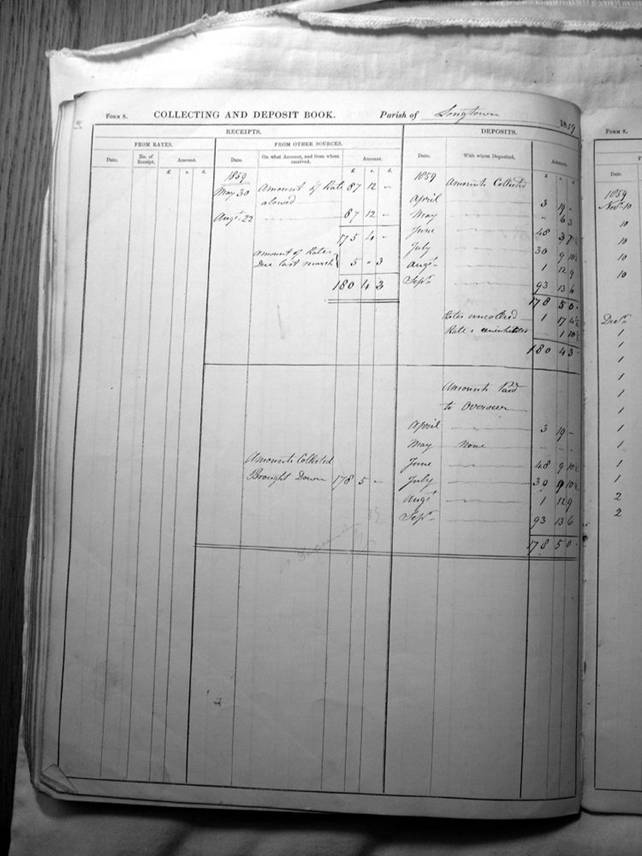 FORM 8. COLLECTING AND DEPOSIT BOOK. Parish of Longtown 1859
RECEIPTS. DEPOSITS.
FROM RATES. FROM OTHER SOURCES.
Date. No. of Receipt. Amount. Date. On what Account, and from whom received. Amount. Date. With whom Deposited. Amount.
£ s. d. £ s. d. £ s. d.
1859
May 30 Amount of Rate 87 12 -
alowed
Augt 22 87 12 -
175 4 -
Amount of Rates
Due last march 5 - 3
180 4 3
1859 Amounts Collected
April 3 19 -
May - 6 3
June 48 3 7½
July 30 9 10½
Augt 1 12 9
Sept 93 13 6
178 5 0
Rates uncolected 1 17 4½
Rate 1 10½
180 4 3
Amounts Paid
to Overseer
April 3 19 -
May None
June 48 9 10½
July 30 9 10½
Augt 1 12 9
Sept 93 13 6
178 5 0
Amounts Collected
Brought Down 178 5 -
FORM 8.
Date.
1859
Novr 10
10
10
10
10
Decr
1
1
1
1
1
1
1
1
1
1
2
2